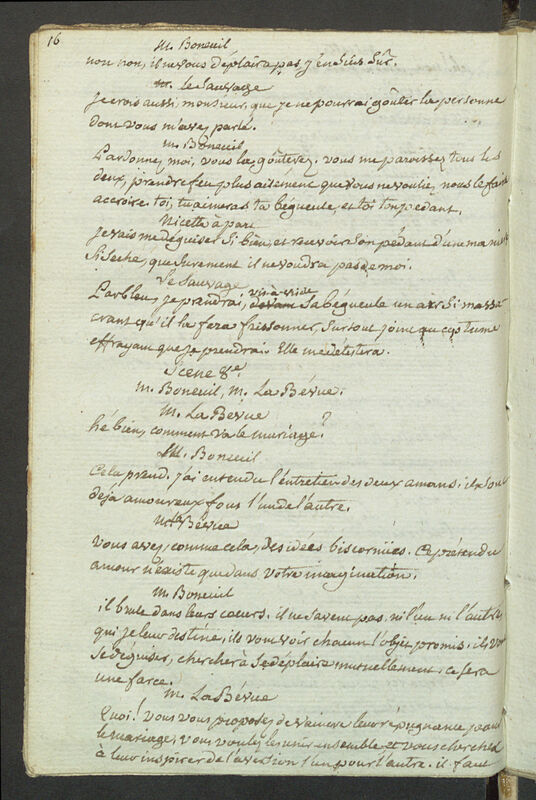 16
M. Boneuil
non non, il ne vous déplaira pas, j'en suis sûr.
le Sauvage
je crois aussi, monsieur, que je ne pourrai goûter la personne
dont vous m'avez parlé.
M. Boneuil
Pardonnez moi, vous la goûterez. vous me paroissez tous les
deux, prendre feu plus aisément que vous ne voulie, nous le faire
accroire. toi, tu aimeras ta bégueule, et toi ton pédant.
Nicette à part
je vais me déguiser si bien, et recevoir son pédant d'une manière
si seche, que surement il ne voudra pas de moi.
Le Sauvage
Parbleu, je prendrai, vis-à-vis de sa bégueule un air si massa-
crant qu'il la fera frissonner, surtout joint au costume
effrayant que je prendrai. Elle me détestera.
Scene 8e
M. Boneuil, M. La Bévue.
M. La Bévue
hé bien, comment va le mariage?
M. Boneuil
Cela prend. j'ai entendu l'entretien des deux amans. ils sont
déja amoureux fous l'un de l'autre.
M. La Bévue
Vous avez, comme cela, des idées biscornües. Ce prétendu
amour n'existe que dans votre imagination.
M. Boneuil
il brule dans leurs cœurs. il ne savent pas, ni l'un ni l'autre
qui je leur destine, ils vont voir chacun l'objet promis, ils vont
se déguiser, chercher à se déplaire mutuellement, ce sera
une farce.
M. La Bévue
Quoi! vous vous proposez de vaincre leur répugnance pour
le mariage, vous voulez les unir ensemble et vous cherchez
à leur inspirer de l'aversion l'un pour l'autre. il faut